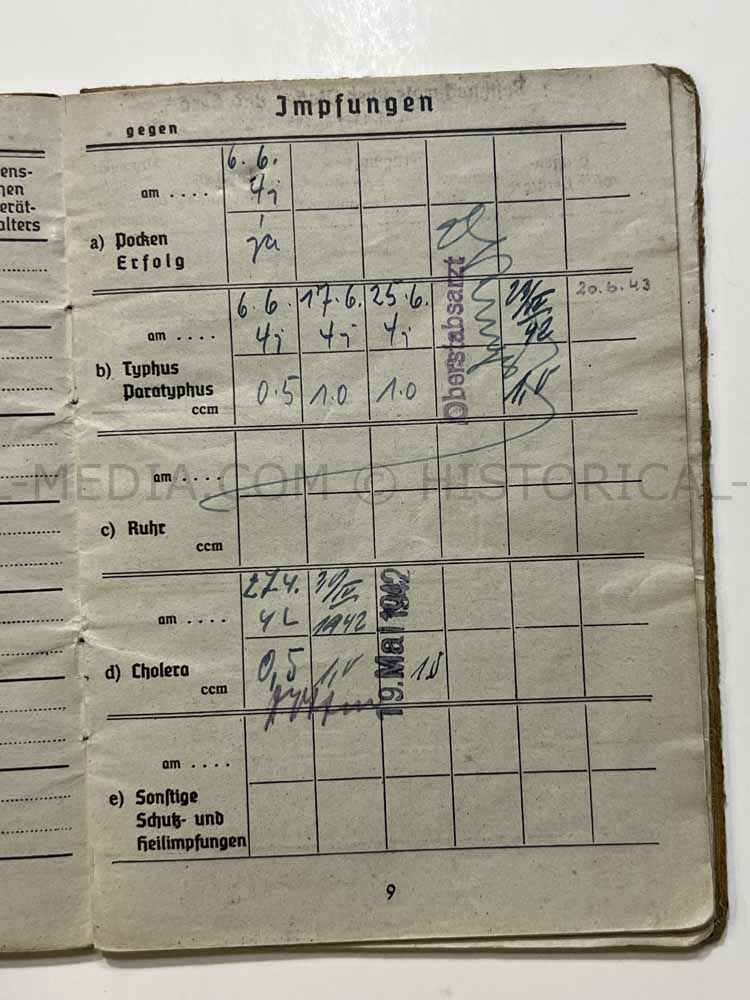 ens-
hen
erät-
alters
Impfungen
gegen
am ....
6.6.
41
a) Pocken
Erfolg
ja
6.6. 17.6. 25.6.
am .... 41 41 41 42 20.6.43
b) Typhus
Paratyphus
ccm
0.5 1.0 1.0 1,0
Oberstabsarzt
am ....
c) Ruhr
ccm
L-MEDIA.COM © HISTORICAL-
27.4. 30/IV
am .... 42 1942
19. Mai 1942
d) Cholera
ccm
0,5 1,0 1,0
am ....
e) Sonstige
Schutz- und
Heilimpfungen
9